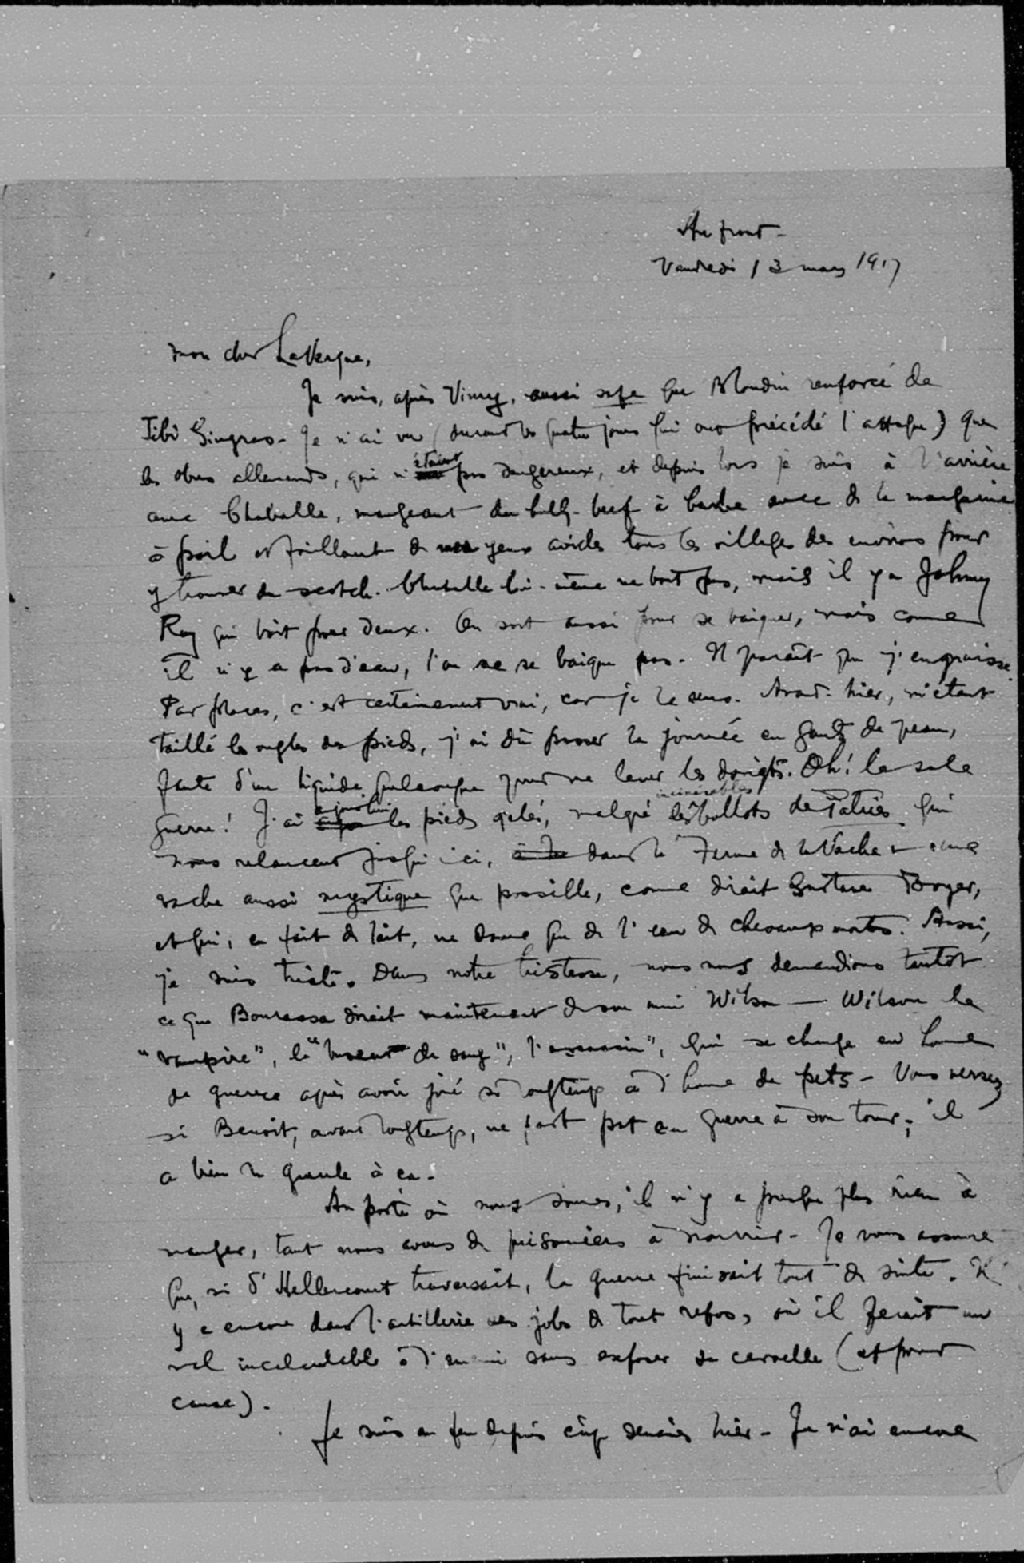 Au front -
Vendredi 13 mars 1917
Mon cher LaVergne,
Je suis, après Vimy, aussi sage que Blondin renforcé de
Tibi Gingras - Je n'ai vu (durant les quatre jours qui ont précédé l'attaque) que
les obus allemands, qui n'étaient pas dangereux, et depuis lors je suis à l'arrière
avec Chaballe, mangeant du bully-beef à barbe avec de la margarine
à poil et fouillant de mes yeux avides tous les villages des environs pour
y trouver du scotch. Chaballe lui-même ne boit pas, mais il y a Johnny
Roy qui boit pour deux. On sort aussi pour se baigner, mais comme
il n'y a pas d'eau, l'on ne se baigne pas. Il paraît que j'engraisse.
Par places, c'est certainement vrai, car je le sens. Avant-hier, m'étant
taillé les ongles des pieds, j'ai dû passer la journée en gants de peau,
faute d'un liquide quelconque pour me laver les doigts. Oh! la sale
guerre! J'ai aujourd'hui les pieds gelés, malgré les ballots de Patries qui
nous relancent jusqu'ici, dans la Ferme de la Vache - une
vache aussi mystique que possible, comme dirait Gustave Boyer,
et qui, en fait de lait, ne donne que de l'eau de chevaux morts. Aussi,
je suis triste. Dans notre tristesse, nous nous demandions tantôt
ce que Bourassa dirait maintenant de son ami Wilson — Wilson le
"vampire", le "buveur de sang", l'"assassin", qui se change en homme
de guerre après avoir joué si longtemps à l'homme de pets - Vous verrez
si Benoit, avant longtemps, ne part pas en guerre à son tour; il
a bien la gueule à ça.
Au poste où nous sommes, il n'y a presque plus rien à
manger, tant nous avons de prisonniers à nourrir - Je vous assure
que, si d'Hellencourt traversait, la guerre finirait tout de suite. Il
y a encore dans l'artillerie des jobs de tout repos, où il ferait un
mal incalculable à l'ennemi sans exposer sa cervelle (et pour
cause).
Je suis au feu depuis cinq heures hier - Je n'ai encore